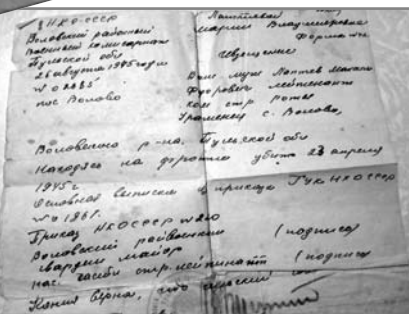 НКО СССР
Воловский районный
Военный комиссариат
Тульской обл
26 августа 1945 года
№ 02885
пос Волово
Лаптевой
Марии Владимировне
Форма №
Извещение
Ваш муж Лаптев Михаил
Федорович лейтенант
ком стр роты
Уроженец с. Волово,
Воловского р-на, Тульской обл
Находясь на фронте убит 23 апреля
1945 г.
Основная выписка приказ ГУК НКО СССР
№ 01861.
Приказ НКО СССР № 220
Воловский райвоенком (подпись)
гвардии майор
нас. части стр. лейтенант (подпись)
Копия верна,